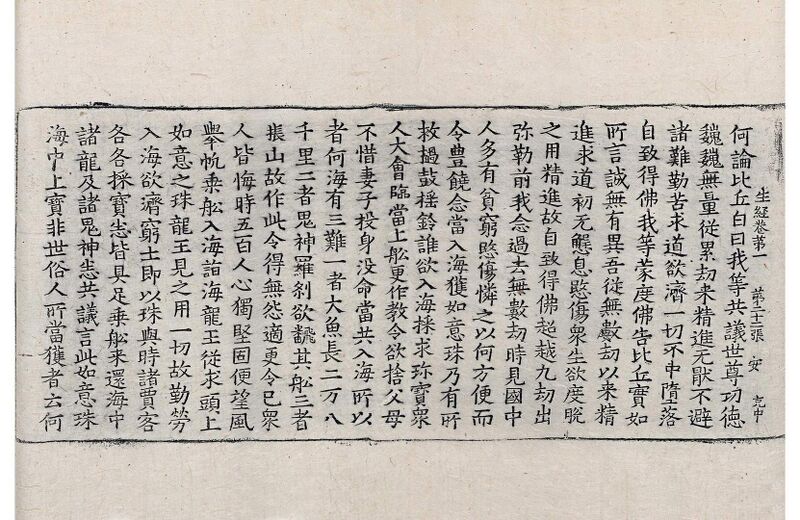 生經卷第一　第二十二張　安
何論比丘白曰我等共議世尊功德
巍巍無量從累劫来精進无猒不避
諸難勤苦求道欲濟一切不中墮落
自致得佛我等蒙度佛告比丘實如
所言誠無有異吾從無數劫以来精
進求道初无懈息愍傷衆生欲度脫
之用精進故自致得佛超越九劫出
弥勒前我念過去無數劫時見國中
人多有貧窮愍傷憐之以何方便而
令豊饒念當入海獲如意珠乃有所
救撾鼓摇鈴誰欲入海採求弥寶衆
人大會臨當上舩更作教令欲捨父母
不惜妻子投身没命當共入海所以
者何海有三難一者大魚長二万八
千里二者鬼神羅刹欲飜其舩三者
振山故作此令得無怨適更令已衆
人皆悔時五百人心獨堅固便望風
舉帆乗舩入海詣海龍王從求頭上
如意之珠龍王見之用一切故勤勞
入海欲濟窮士即以珠與時諸賈客
各各採寶悉皆具足乗舩来還海中
諸龍及諸鬼神悉共議言此如意珠
海中上寶非世俗人所當獲者云何